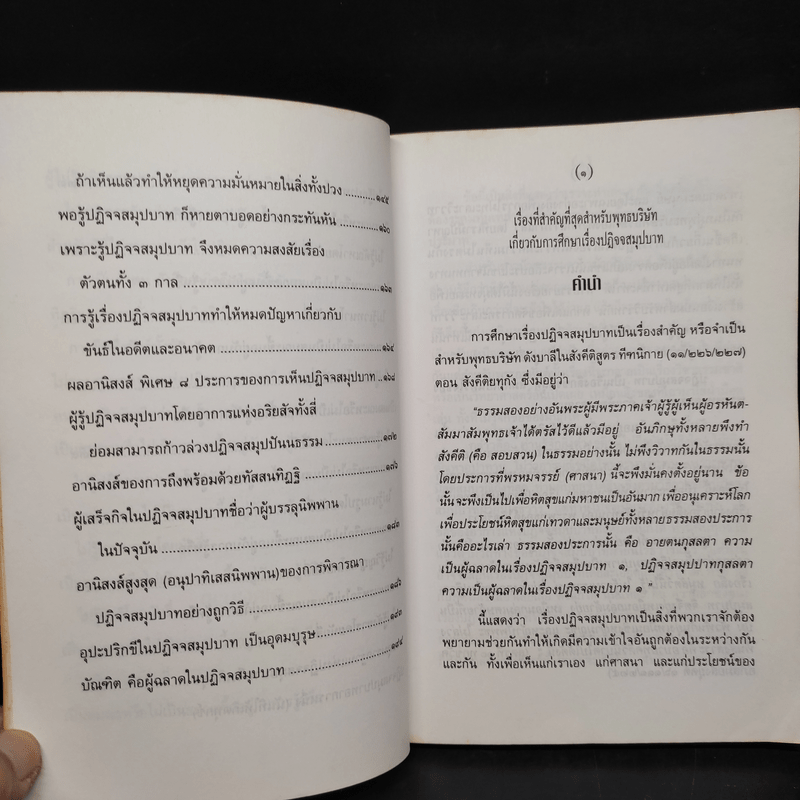 ถ้าเห็นแล้วทำให้หยุดความมั่นหมายในสิ่งทั้งปวง ...........๑๔๕
พอรู้ปฏิจจสมุปบาท ก็หายตาบอดอย่างกะทันหัน ...........๑๖๐
เพราะรู้ปฏิจจสมุปบาท จึงหมดความสงสัยเรื่อง
ตัวตนทั้ง ๓ กาล ...........๑๖๓
การรู้เรื่องปฏิจจสมุปบาททำให้หมดปัญหาเกี่ยวกับ
ขันธ์ในอดีตและอนาคต ...........๑๖๔
ผลอานิสงส์ พิเศษ ๘ ประการของการเห็นปฏิจจสมุปบาท ...๑๖๘
ผู้รู้ปฏิจจสมุปบาทโดยอาการแห่งอริยสัจทั้งสี่
ย่อมสามารถก้าวล่วงปฏิจจสมุปปันนธรรม ...........๑๗๒
อานิสงส์ของการถึงพร้อมด้วยทัสสนทิฏฐิ ...........๑๗๖
ผู้เสร็จกิจในปฏิจจสมุปบาทชื่อว่าผู้บรรลุนิพพาน
ในปัจจุบัน ...........๑๘๓
อานิสงส์สูงสุด (อนุปาทิเสสนิพพาน)ของการพิจารณา
ปฏิจจสมุปบาทอย่างถูกวิธี ...........๑๘๖
อุปะปริกขีในปฏิจจสมุปบาท เป็นอุดมบุรุษ...........๑๙๓
บัณฑิต คือผู้ฉลาดในปฏิจจสมุปบาท ...........๑๙๔
(๑)
เรื่องที่สำคัญที่สุดสำหรับพุทธบริษัท
เกี่ยวกับการศึกษาเรื่องปฏิจจสมุปบาท
คำนำ
การศึกษาเรื่องปฏิจจสมุปบาทเป็นเรื่องสำคัญ หรือจำเป็น
สำหรับพุทธบริษัท ดังบาลีในสังคีติสูตร ทีฆนิกาย (๑๑/๒๒๖/๒๒๗)
ตอน สังคีติยทุกัง ซึ่งมีอยู่ว่า
"ธรรมสองอย่างอันพระผู้มีพระภาคเจ้าผู้รู้ผู้เห็นผู้อรหันต-
สัมมาสัมพุทธเจ้าได้ตรัสไว้ดีแล้วมีอยู่ อันภิกษุทั้งหลายพึงทำ
สังคีติ (คือ สอบสวน) ในธรรมอย่างนั้น ไม่พึงวิวาทกันในธรรมนั้น
โดยประการที่พรหมจรรย์ (ศาสนา) นี้จะพึงมั่นคงตั้งอยู่นาน ข้อ
นั้นจะพึงเป็นไปเพื่อหิตสุขแก่มหาชนเป็นอันมาก เพื่ออนุเคราะห์โลก
เพื่อประโยชน์หิตสุขแก่เทวดาและมนุษย์ทั้งหลายธรรมสองประการ
นั้นคืออะไรเล่า ธรรมสองประการนั้น คือ อายตนกุสลตา ความ
เป็นผู้ฉลาดในเรื่องปฏิจจสมุปบาท ๑, ปฏิจจสมุปปาทกุสลตา
ความเป็นผู้ฉลาดในเรื่องปฏิจจสมุปบาท ๑ "
นี้แสดงว่า เรื่องปฏิจจสมุปบาทเป็นสิ่งที่พวกเราจักต้อง
พยายามช่วยกันทำให้เกิดมีความเข้าใจอันถูกต้องในระหว่างกัน
และกัน ทั้งเพื่อเห็นแก่เราเอง แก่ศาสนา และแก่ประโยชน์ของ